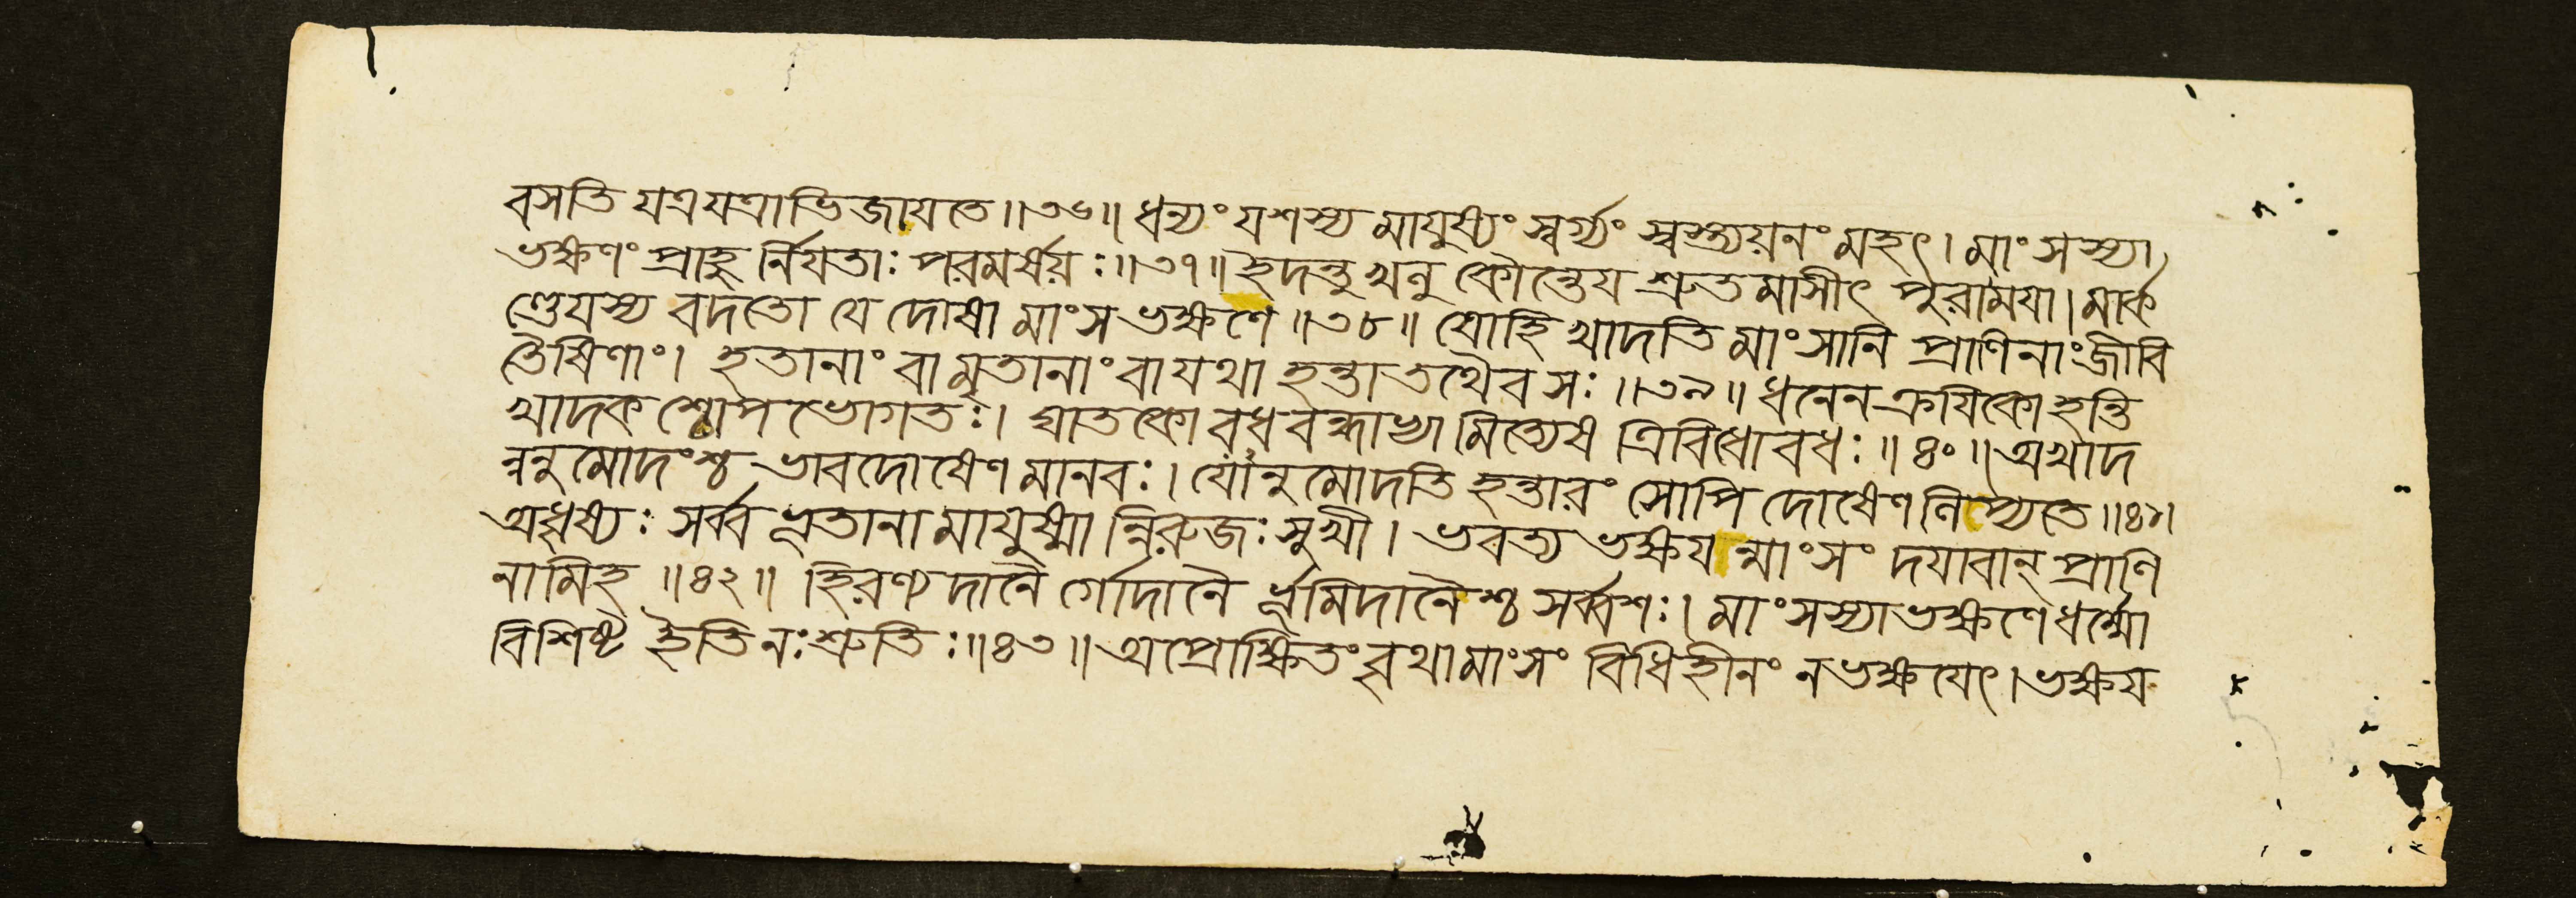 বসতি যত্র যত্রাভিজাযতে ॥ ৩৬ ॥ ধন্যং যশস্য মাযুষ্যং স্বর্গ্যং স্বস্ত্যয়নং মহৎ । মাংসস্যা
ভক্ষণং প্রাহু র্নিযতাঃ পরমর্ষয়ঃ ॥ ৩৭ ॥ ইদন্তু খলু কৌন্তেয শ্রুতমাসীৎ পুরা ময়া । মার্ক
ণ্ডেযস্য বদতো যে দোষা মাংস ভক্ষণে ॥ ৩৮ ॥ যোহি খাদতি মাংসানি প্রাণিনাং জীবি
তৈষিণাং । হতানাং বা মৃতানাং বা যথা হন্তা তথৈব সঃ ॥ ৩৯ ॥ ধনেন ক্রযিকো হন্তি
খাদক শ্চোপভোগতঃ । ঘাতকো বধবন্ধাভ্যা মিত্যেষ ত্রিবিধো বধঃ ॥ ৪০ ॥ অখাদ
ন্ননুমোদংশ্চ ভাবদোষেণ মানবঃ । যোনুমোদতি হন্তারং সোপি দোষেণ লিপ্যতে ॥ ৪১ ।
অধৃষ্যঃ সর্ব্ব ভূতানা মাযুষ্মা ন্নিরুজঃ সুখী । ভবত্য ভক্ষয ন্মাংসং দযাবান্ প্রাণি
নামিহ ॥ ৪২ ॥ হিরণ্য দানৈ র্গোদানৈ র্ভূমিদানৈশ্চ সর্ব্বশঃ । মাংসস্যাভক্ষণে ধর্ম্মো
বিশিষ্ট ইতি নঃ শ্রুতিঃ ॥ ৪৩ ॥ অপ্রোক্ষিতং বৃথামাংসং বিধিহীনং ন ভক্ষযেৎ । ভক্ষয